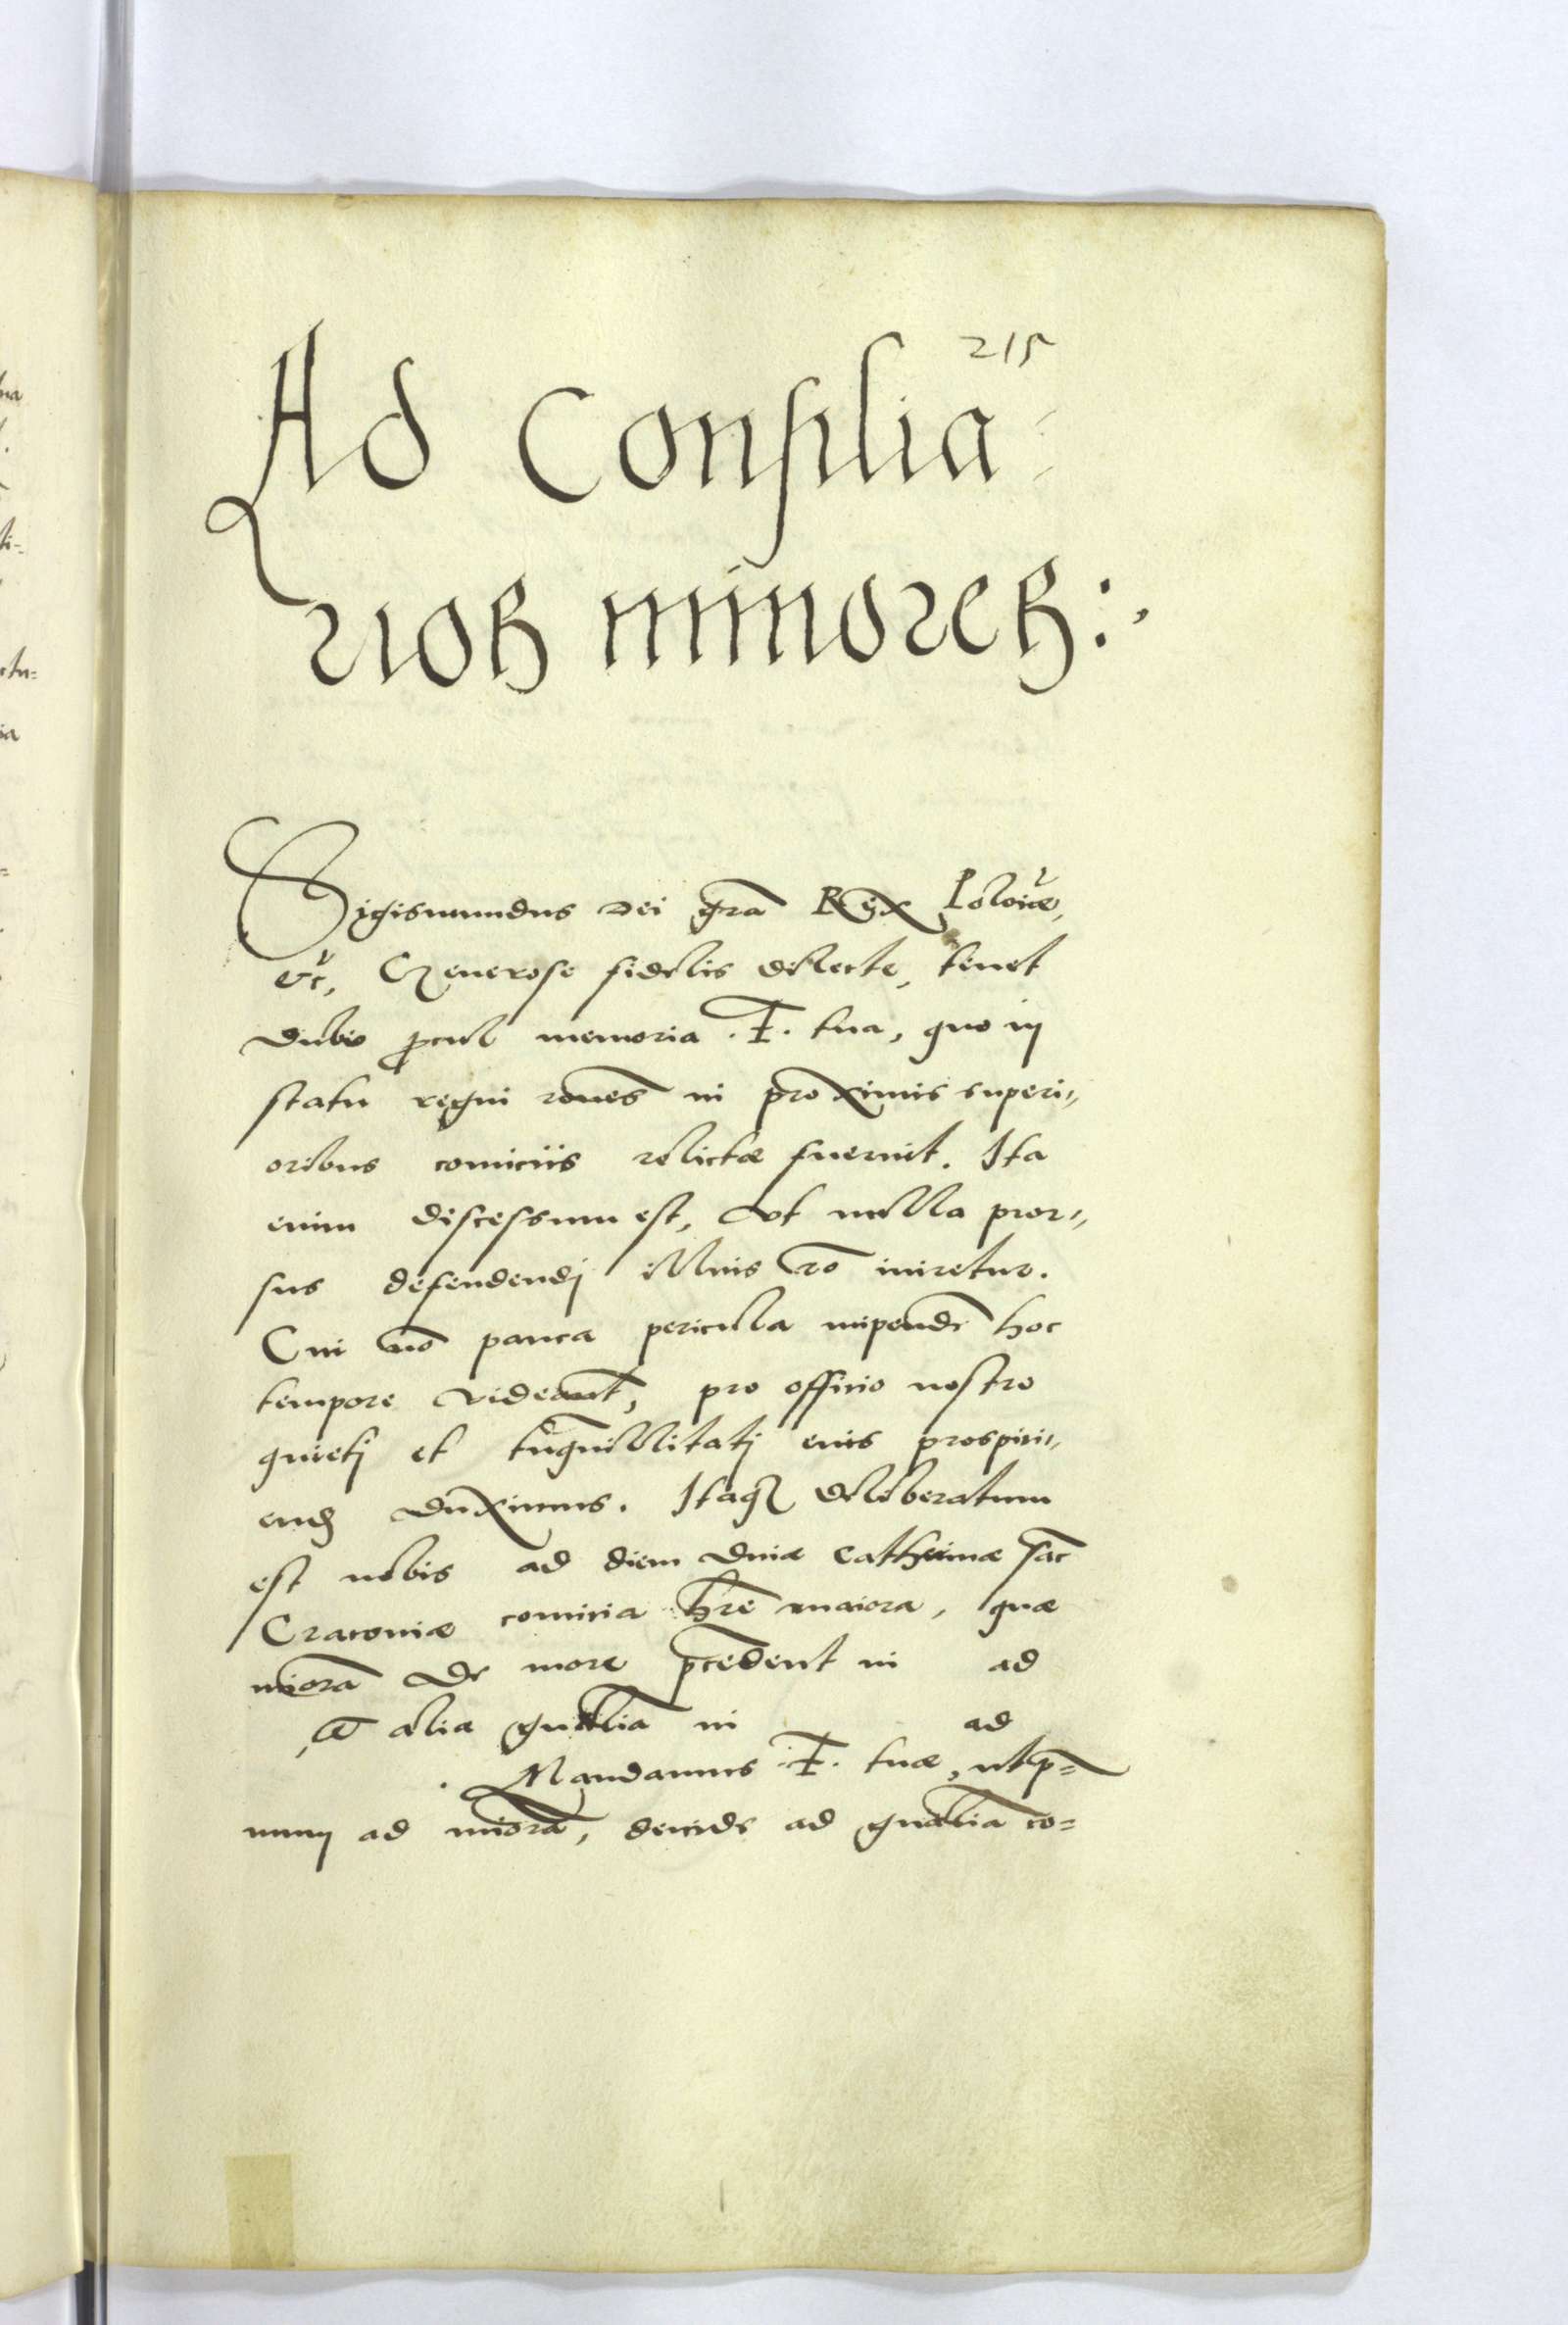 215
Ad Consilia-
rios minores:,
Sigismundus Dei gra Rex Poloniæ,
etc, Generose fidelis dilecte, tenet
dubio procul memoria .F. tua, quo in
statu regni rones in proximis superi,,
oribus comiciis relictæ fuerint. Ita
enim discessum est, Vt nulla pror,,
sus defendendi illius ro iniretur.
Cui no pauca pericula impende hoc
tempore videant, pro officio nostro
quieti et tnquillitati eius prospici,,
end duximus. Itaq deliberatum
est nobis ad diem Diuæ Catherinæ sac
Cracouiæ comicia hre maiora, quæ
miora De more pcedent in ad
a alia gnalia in ad
. Mandamus .F. tuæ, ut p=
mum ad miora, deinde ad gnalia co=